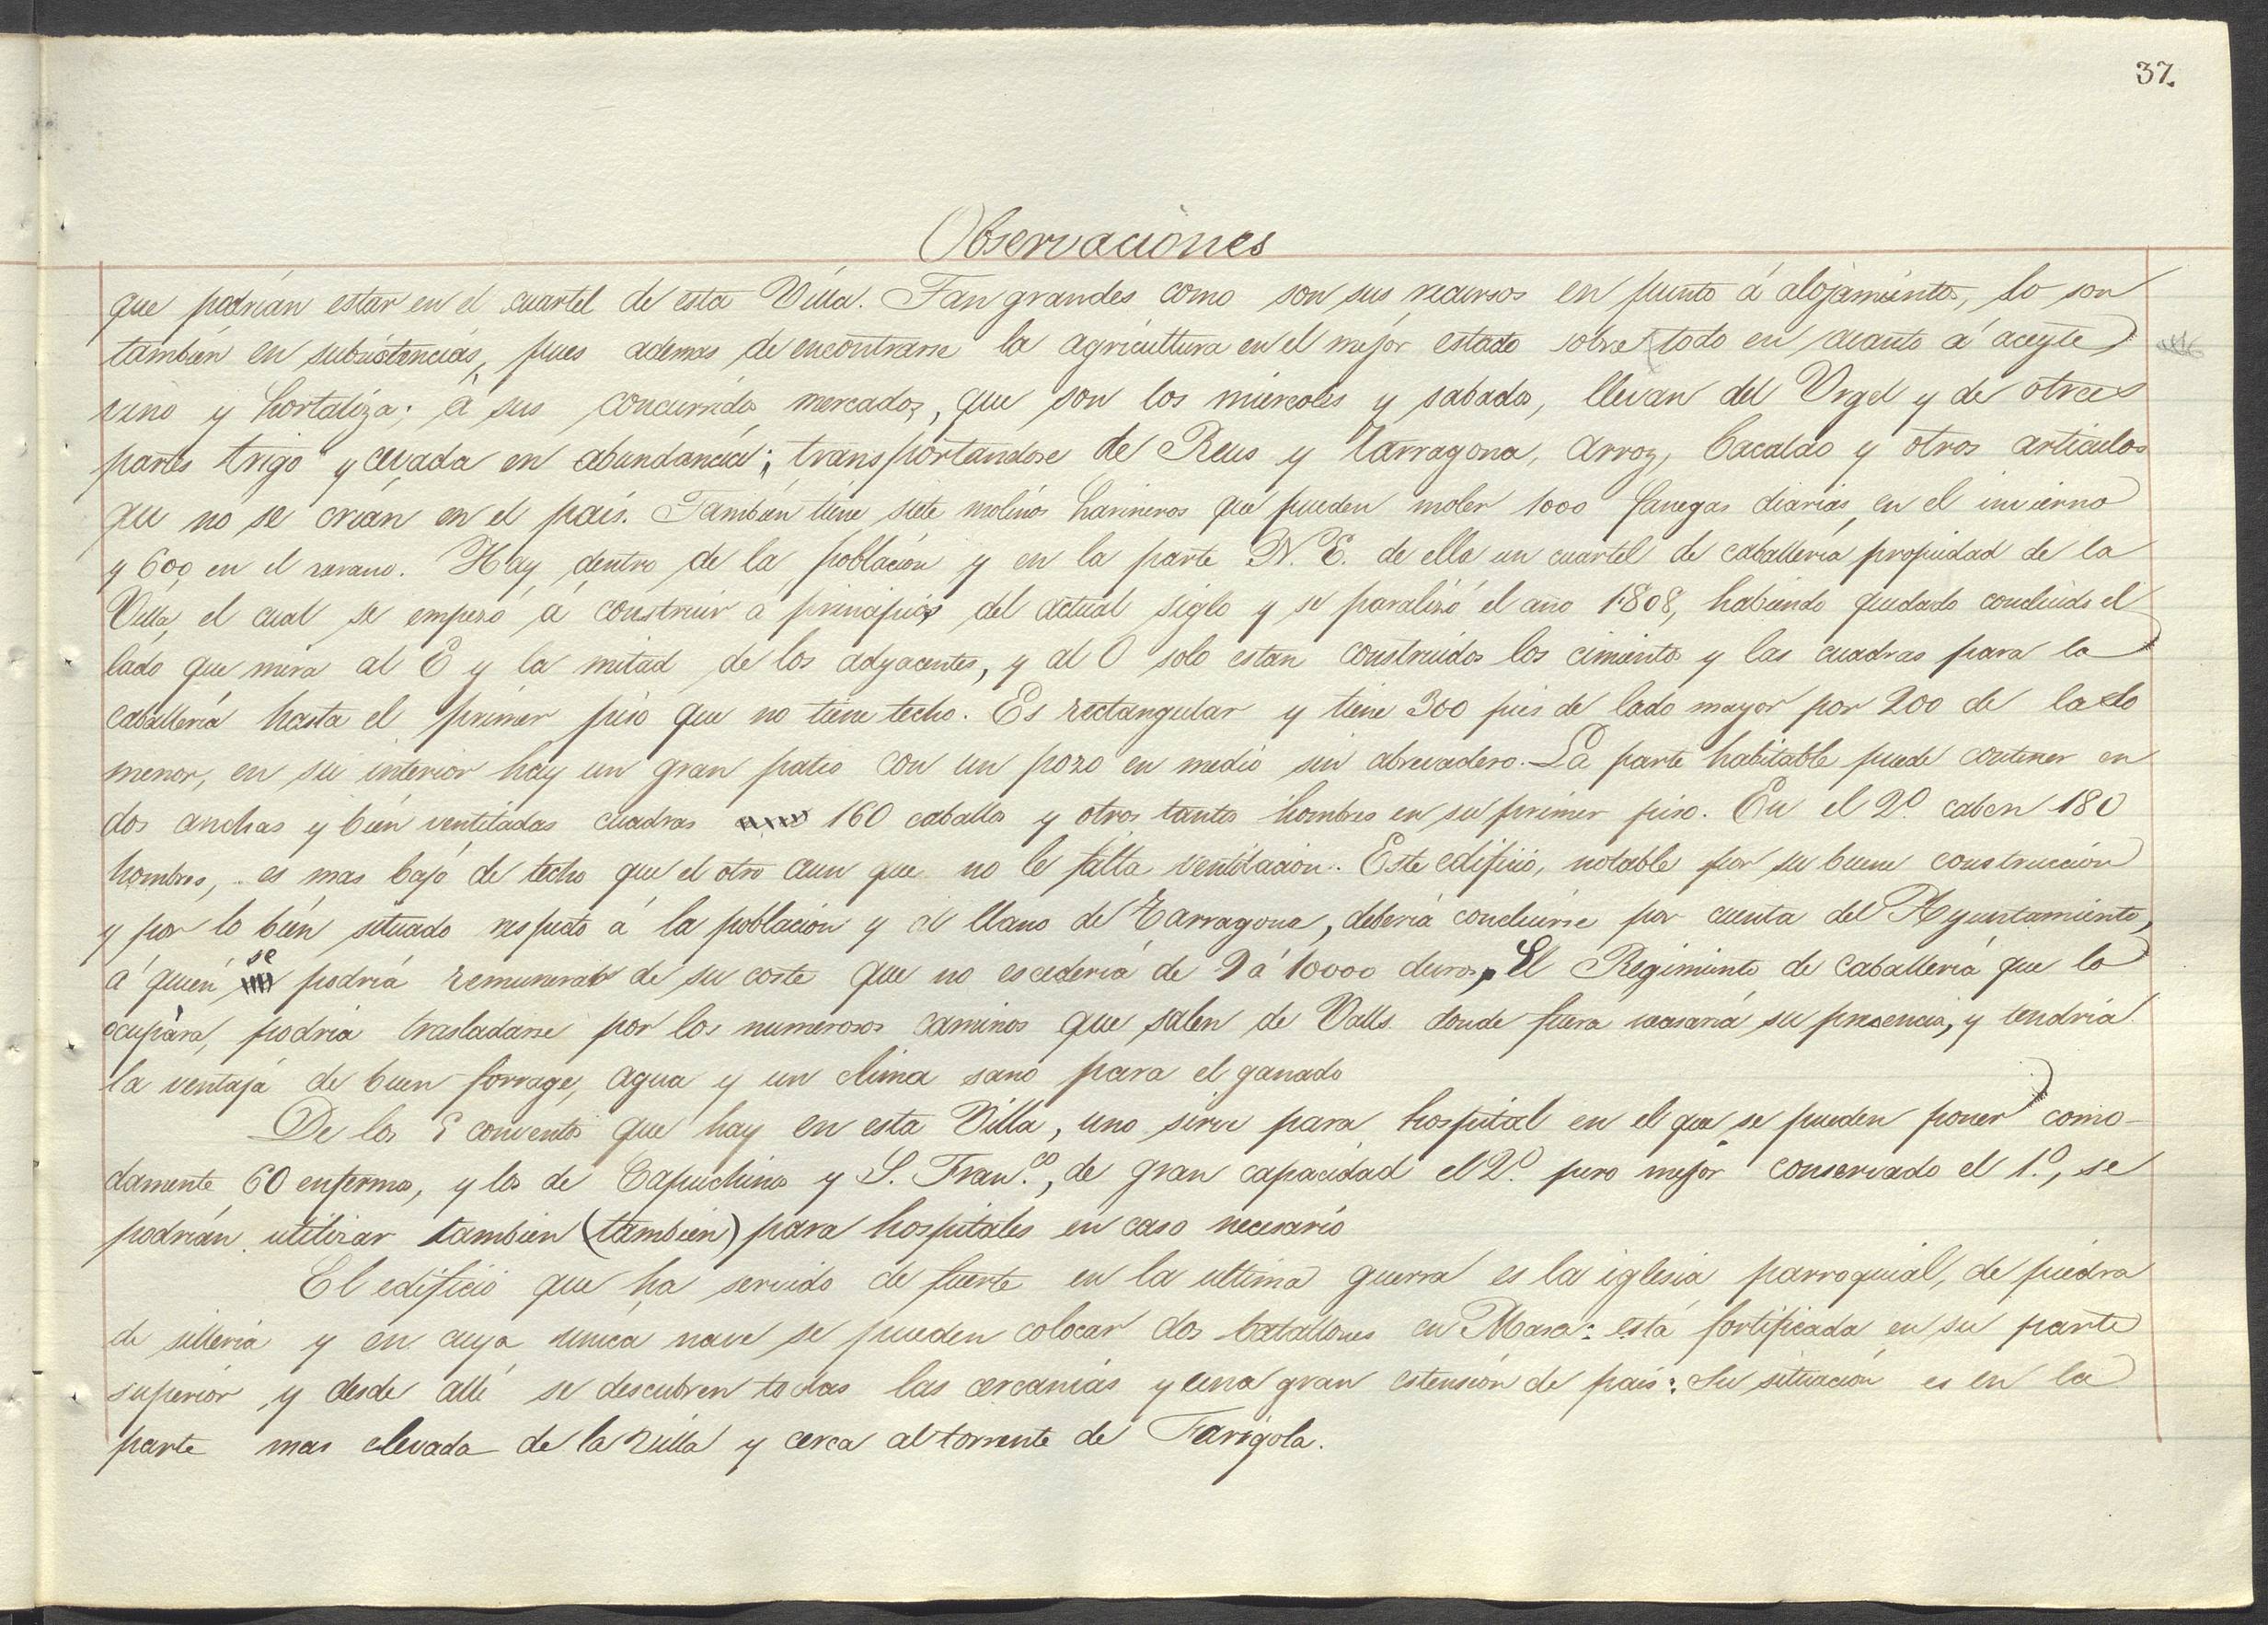 37.
Observaciones
que podrían estar en el cuartel de esta Villa. Tan grandes como son sus recursos en punto á alojamiento, lo son
tambien en subsistencias, pues ademas de encontrarse la agricultura en el mejor estado sobre todo en cuanto á aceyte
vino y hortaliza; á sus concurridos mercados, que son los miercoles y sabados, llevan del Urgel y de otras
partes trigo y cevada en abundancia; transportandose de Reus y Tarragona, arroz, bacalao y otros articulos
que no se crian en el país. Tambien tiene siete molinos harineros que pueden moler 1000 fanegas diarias en el invierno
y 600 en el verano. Hay dentro de la población y en la parte N.E. de ella un cuartel de caballería propiedad de la
Villa, el cual se empezó á construir á principios del actual siglo y se paralizó el año 1.808, habiendo quedado concluido el
lado que mira al E y la mitad de los adyacentes, y al O solo estan construidos los cimientos y las cuadras para la
caballería hasta el primer piso que no tiene techo. Es rectangular y tiene 300 pies de lado mayor por 200 de lado
menor, en su interior hay un gran patio con un pozo en medio sin abrevadero. La parte habitable puede contener en
dos anchas y bien ventiladas cuadras 160 caballos y otros tantos hombres en su primer piso. En el 2º caben 180
hombres, es mas bajo de techo que el otro aun que no le falta ventilación. Este edificio, notable por su buena construcción
y por lo bien situado respecto á la población y al llano de Tarragona, debería concluirse por cuenta del Ayuntamiento,
á quien se podría remunerar de su coste que no escedería de 9 á 10000 duros, El Regimiento de caballería que lo
ocupára, podria trasladarse por los numerosos caminos que salen de Valls donde fuera necesaria su presencia, y tendría
la ventaja de buen forrage, agua y un clima sano para el ganado
De los 5 conventos que hay en esta Villa, uno sirve para hospital en el que se pueden poner como-
damente 60 enfermos, y los de Capuchinos y S. Fran.co, de gran capacidad el 2º pero mejor conservado el 1.º, se
podrían utilizar tambien (tambien) para hospitales en caso necesario
El edificio que ha servido de fuerte en la ultima guerra es la iglesia parroquial, de piedra
de sillería y en cuya unica nave se pueden colocar dos batallones en Masa: está fortificada en su parte
superior y desde allí se descubren todas las cercanías y una gran estensión de país: Su situación es en la
parte mas elevada de la villa y cerca al torrente de Farigola.